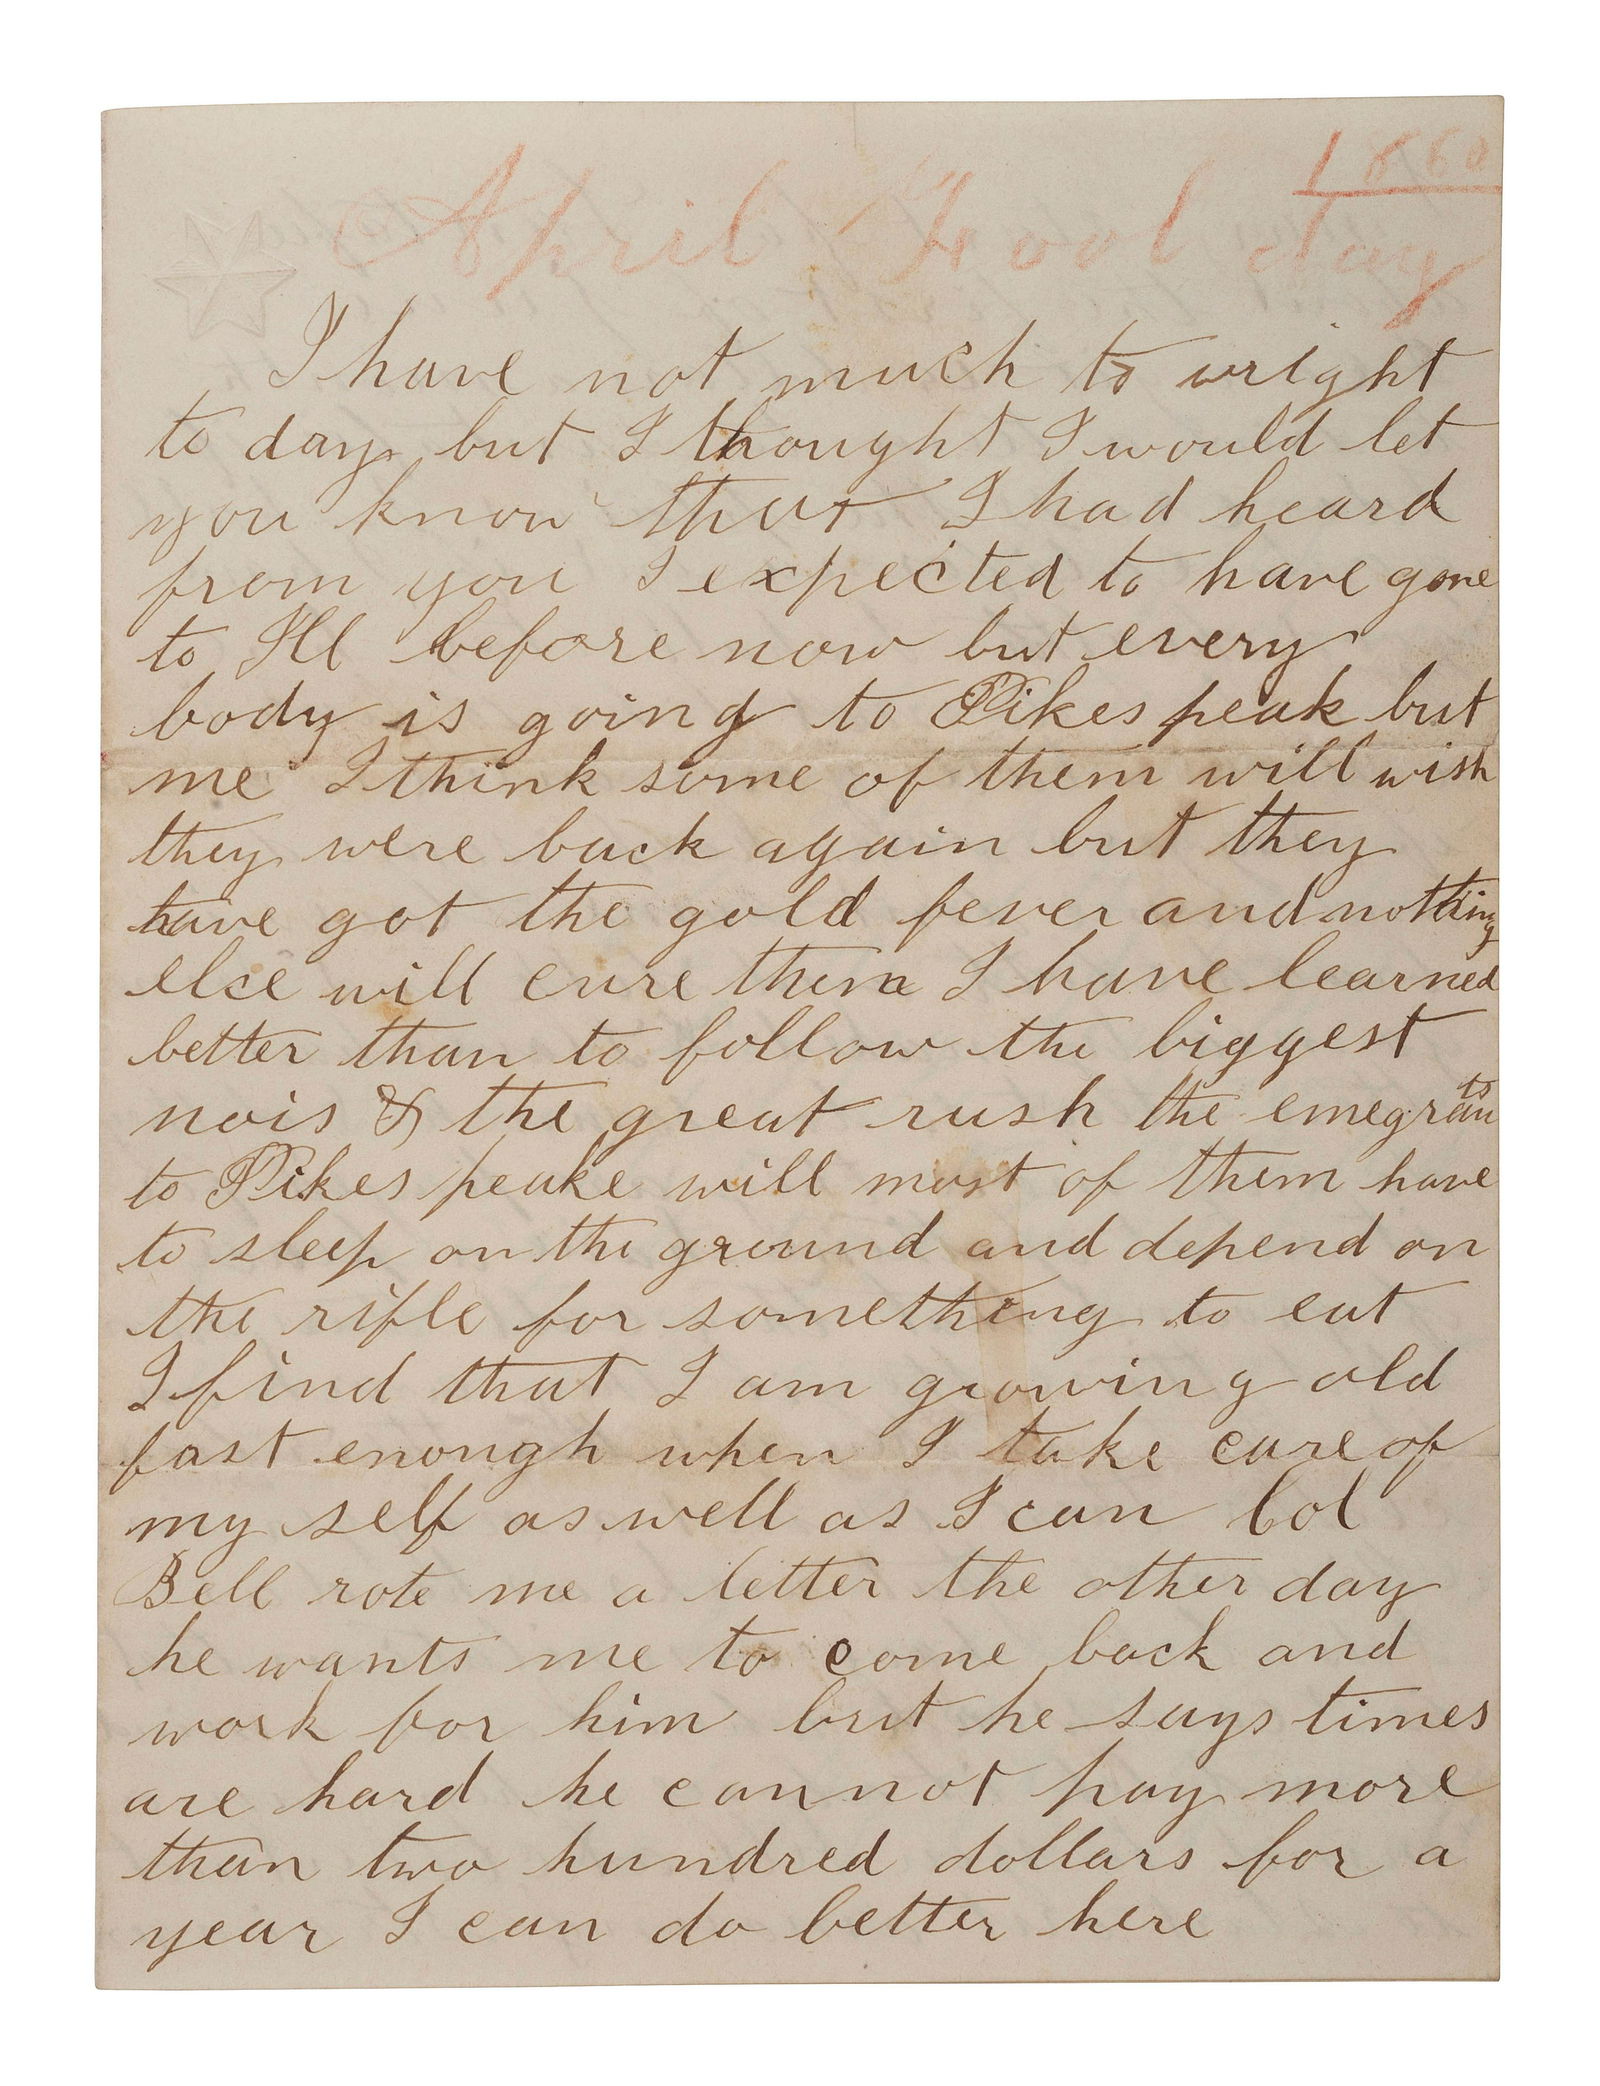 1860
April Fool day
I have not much to wright
to day but I thought I would let
you know that I had heard
from you I expected to have gone
to Ill before now but every
body is going to Pikes peak but
me I think some of them will wish
they were back again but they
have got the gold fever and nothing
else will cure them I have learned
better than to follow the biggest
nois & the great rush the emegrants
to Pikes peake will most of them have
to sleep on the ground and depend on
the rifle for something to eat
I find that I am growing old
fast enough when I take care of
my self as well as I can Col
Bell rote me a letter the other day
he wants me to come back and
work for him but he says times
are hard he cannot pay more
than two hundred dollars for a
year I can do better here